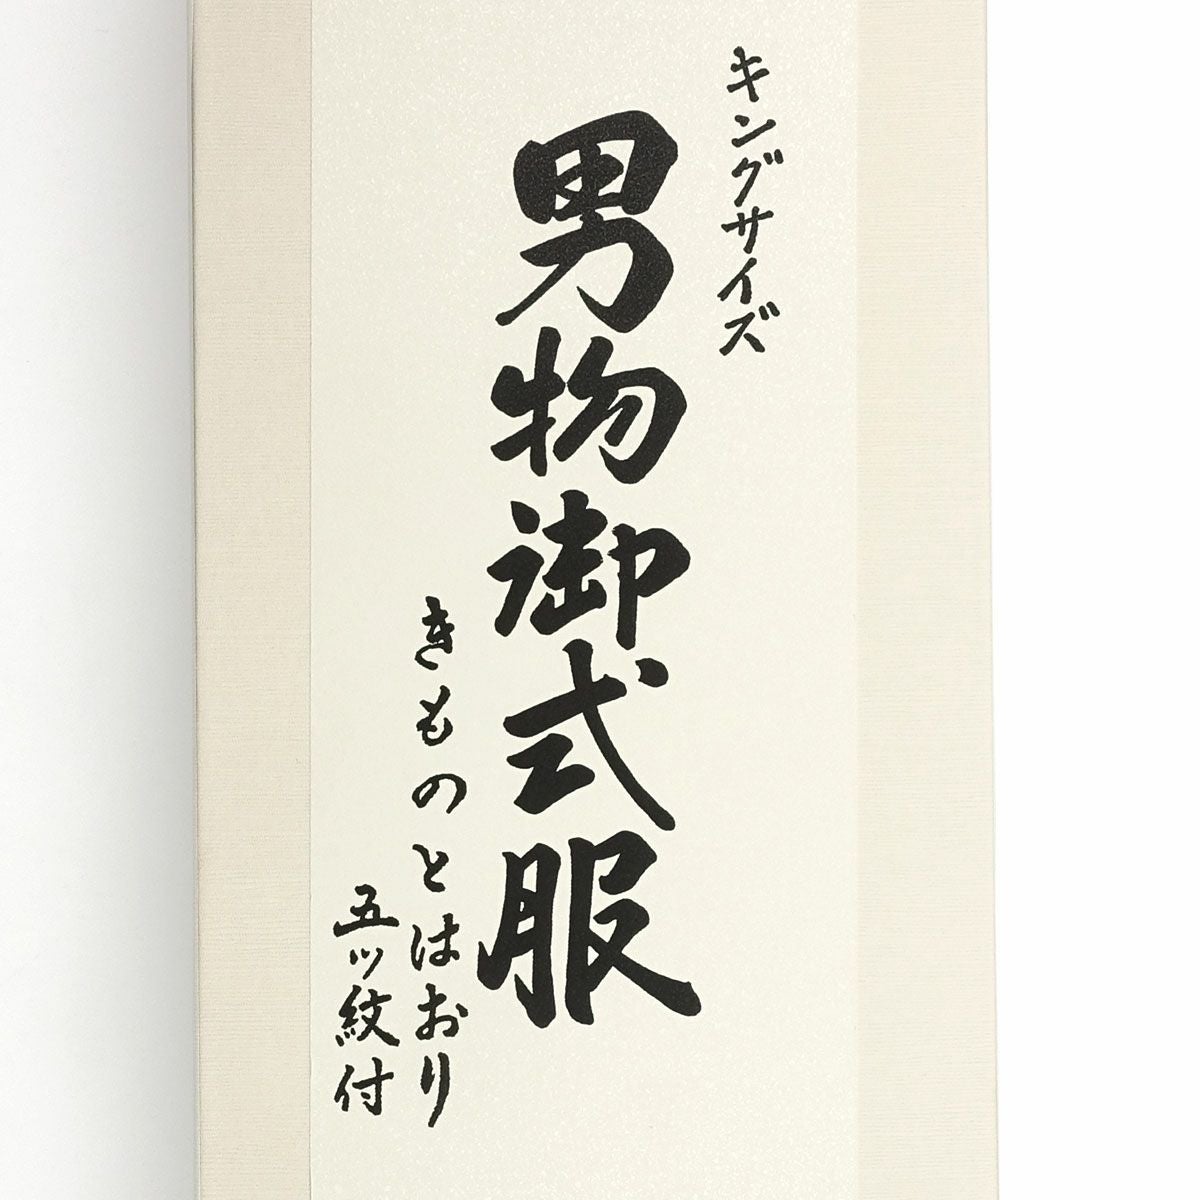 キングサイズ
男物御式服
きものとはおり
五ッ紋付